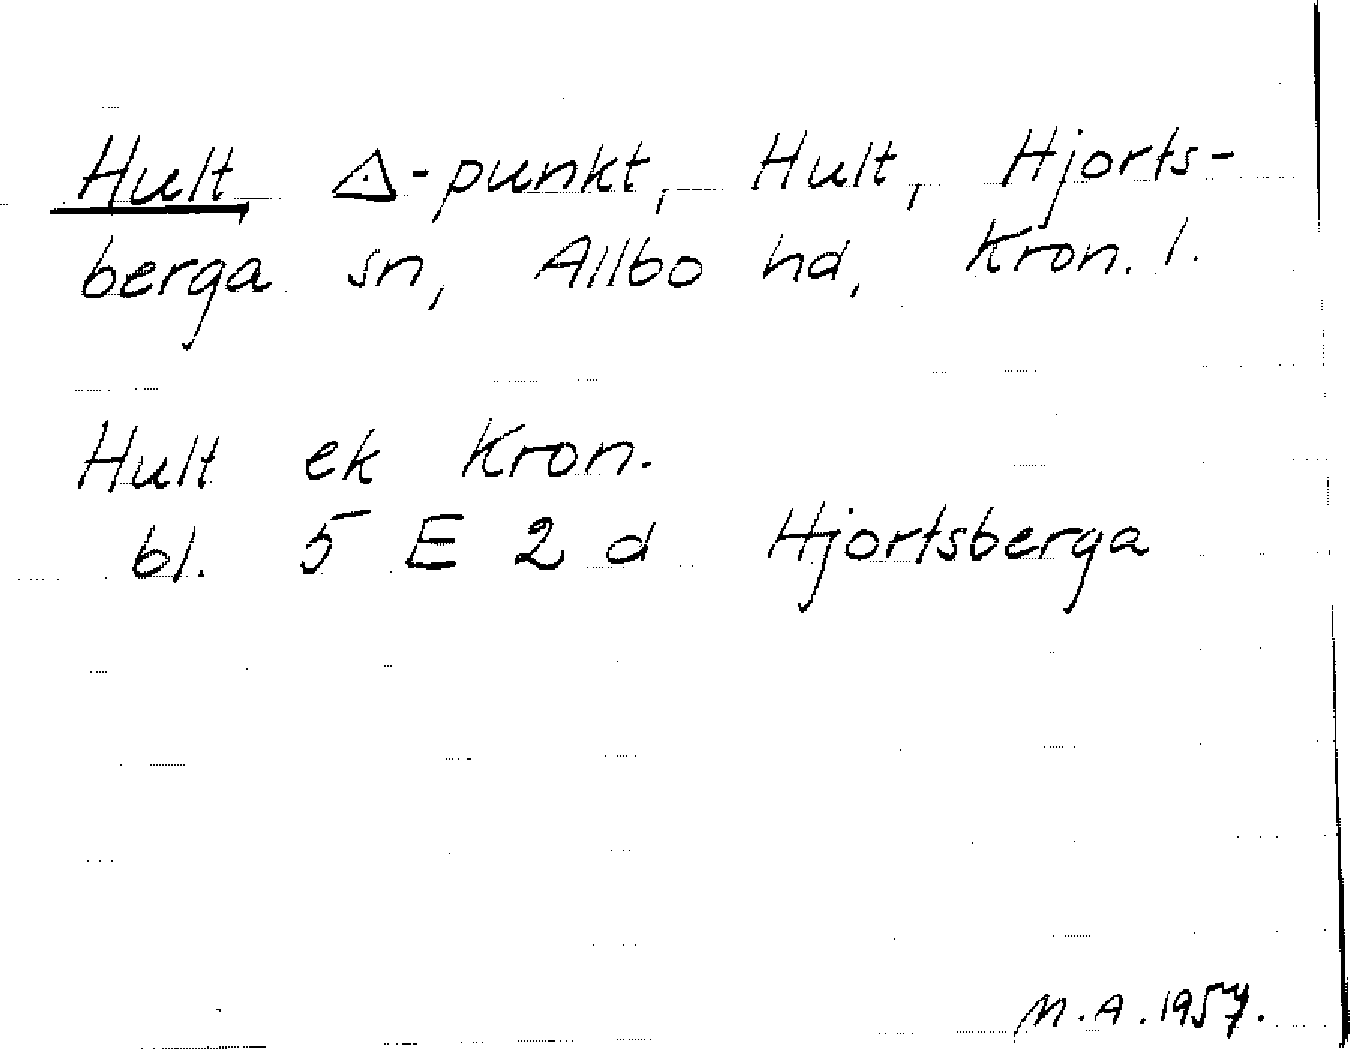 Hult △-punkt, Hult, Hjorts-
berga sn, Allbo hd, Kron. l.
Hult ek Kron.
bl. 5 E 2 d Hjortsberga
M.A. 1957.